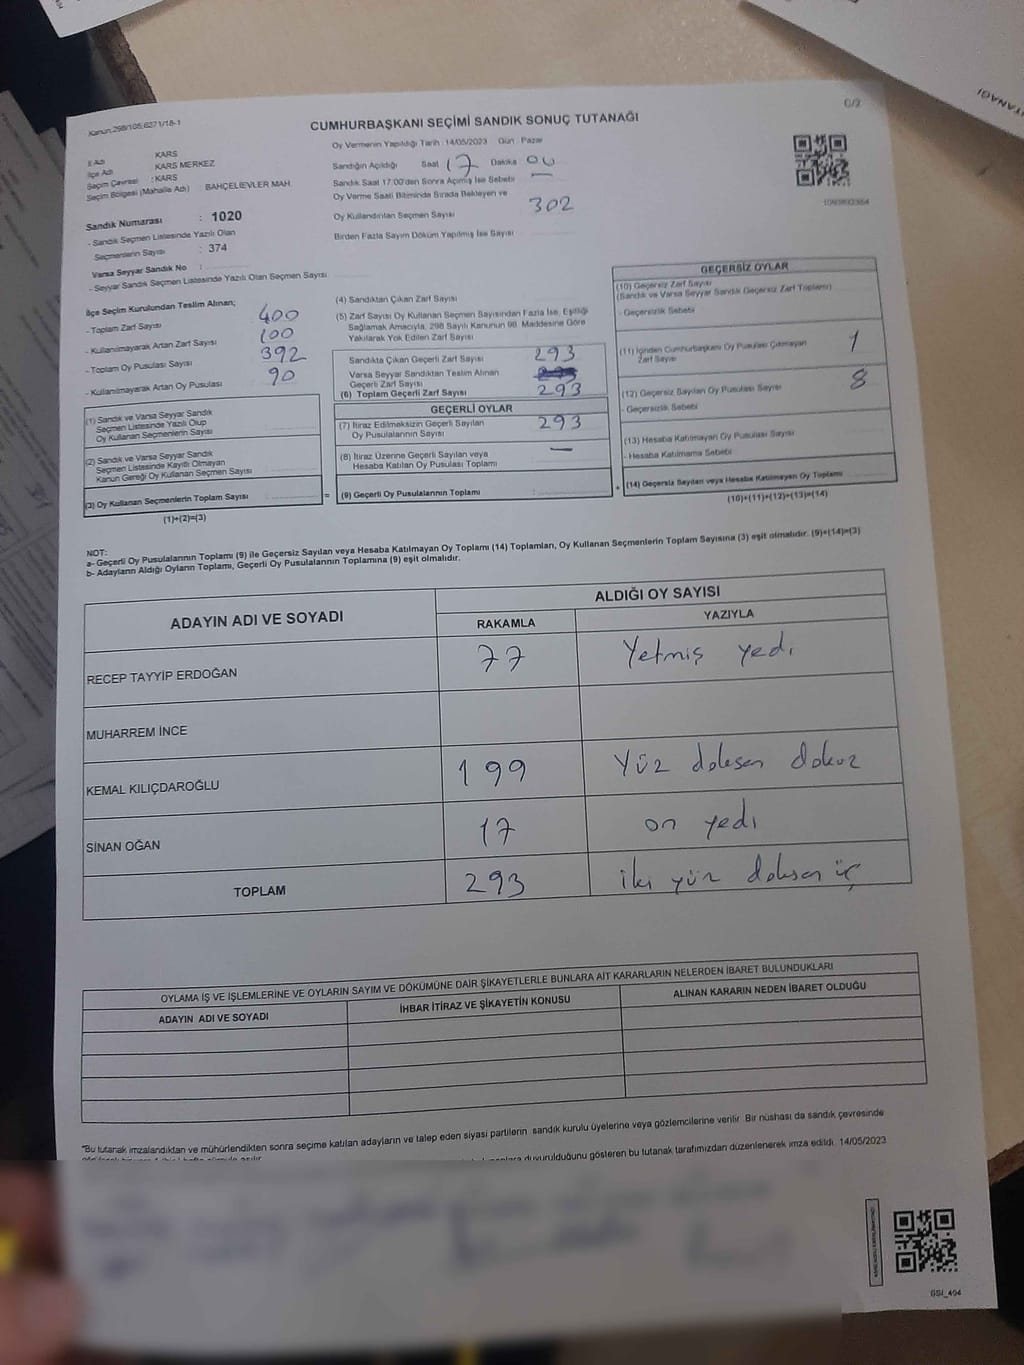 C/2
Kanun.298/105;6271/18-1
CUMHURBAŞKANI SEÇİMİ SANDIK SONUÇ TUTANAĞI
İl Adı KARS
İlçe Adı KARS MERKEZ
Seçim Çevresi : KARS
Seçim Bölgesi (Mahalle Adı) BAHÇELİEVLER MAH.
Sandık Numarası : 1020
- Sandık Seçmen Listesinde Yazılı Olan
Seçmenlerin Sayısı : 374
Varsa Seyyar Sandık No :
- Seyyar Sandık Seçmen Listesinde Yazılı Olan Seçmen Sayısı
Oy Vermenin Yapıldığı Tarih :14/05/2023 Gün : Pazar
Sandığın Açıldığı Saat 17 Dakika 00
Sandık Saat 17:00'den Sonra Açılmış İse Sebebi —
Oy Verme Saati Bitiminde Sırada Bekleyen ve
Oy Kullandırılan Seçmen Sayısı 302
Birden Fazla Sayım Döküm Yapılmış İse Sayısı
İlçe Seçim Kurulundan Teslim Alınan;
- Toplam Zarf Sayısı 400
- Kullanılmayarak Artan Zarf Sayısı 100
- Toplam Oy Pusulası Sayısı 392
- Kullanılmayarak Artan Oy Pusulası 90
(1) Sandık ve Varsa Seyyar Sandık
Seçmen Listesinde Yazılı Olup
Oy Kullanan Seçmenlerin Sayısı
(2) Sandık ve Varsa Seyyar Sandık
Seçmen Listesinde Kayıtlı Olmayan
Kanun Gereği Oy Kullanan Seçmen Sayısı
(3) Oy Kullanan Seçmenlerin Toplam Sayısı
(1)+(2)=(3)
=
(4) Sandıktan Çıkan Zarf Sayısı
(5) Zarf Sayısı Oy Kullanan Seçmen Sayısından Fazla İse, Eşitliği
Sağlamak Amacıyla, 298 Sayılı Kanunun 98. Maddesine Göre
Yakılarak Yok Edilen Zarf Sayısı
Sandıkta Çıkan Geçerli Zarf Sayısı 293
Varsa Seyyar Sandıktan Teslim Alınan
Geçerli Zarf Sayısı
(6) Toplam Geçerli Zarf Sayısı 293
GEÇERLİ OYLAR
(7) İtiraz Edilmeksizin Geçerli Sayılan
Oy Pusulalarının Sayısı 293
(8) İtiraz Üzerine Geçerli Sayılan veya
Hesaba Katılan Oy Pusulası Toplamı —
(9) Geçerli Oy Pusulalarının Toplamı :
+
GEÇERSİZ OYLAR
(10) Geçersiz Zarf Sayısı
(Sandık ve Varsa Seyyar Sandık Geçersiz Zarf Toplamı)
- Geçersizlik Sebebi
(11) İçinden Cumhurbaşkanı Oy Pusulası Çıkmayan
Zarf Sayısı 1
(12) Geçersiz Sayılan Oy Pusulası Sayısı 8
- Geçersizlik Sebebi
(13) Hesaba Katılmayan Oy Pusulası Sayısı
- Hesaba Katılmama Sebebi
(14) Geçersiz Sayılan veya Hesaba Katılmayan Oy Toplamı
(10)+(11)+(12)+(13)=(14)
NOT:
a- Geçerli Oy Pusulalarının Toplamı (9) ile Geçersiz Sayılan veya Hesaba Katılmayan Oy Toplamı (14) Toplamları, Oy Kullanan Seçmenlerin Toplam Sayısına (3) eşit olmalıdır. (9)+(14)=(3)
b- Adayların Aldığı Oyların Toplamı, Geçerli Oy Pusulalarının Toplamına (9) eşit olmalıdır.
ADAYIN ADI VE SOYADI
ALDIĞI OY SAYISI
RAKAMLA YAZIYLA
RECEP TAYYİP ERDOĞAN 77 Yetmiş yedi
MUHARREM İNCE
KEMAL KILIÇDAROĞLU 199 Yüz doksan dokuz
SİNAN OĞAN 17 on yedi
TOPLAM 293 iki yüz doksan üç
OYLAMA İŞ VE İŞLEMLERİNE VE OYLARIN SAYIM VE DÖKÜMÜNE DAİR ŞİKAYETLERLE BUNLARA AİT KARARLARIN NELERDEN İBARET BULUNDUKLARI
ADAYIN ADI VE SOYADI İHBAR İTİRAZ VE ŞİKAYETİN KONUSU ALINAN KARARIN NEDEN İBARET OLDUĞU
*Bu tutanak imzalandıktan ve mühürlendikten sonra seçime katılan adayların ve talep eden siyasi partilerin sandık kurulu üyelerine veya gözlemcilerine verilir. Bir nüshası da sandık çevresinde
duyurulduğunu gösteren bu tutanak tarafımızdan düzenlenerek imza edildi. 14/05/2023
GSI_494